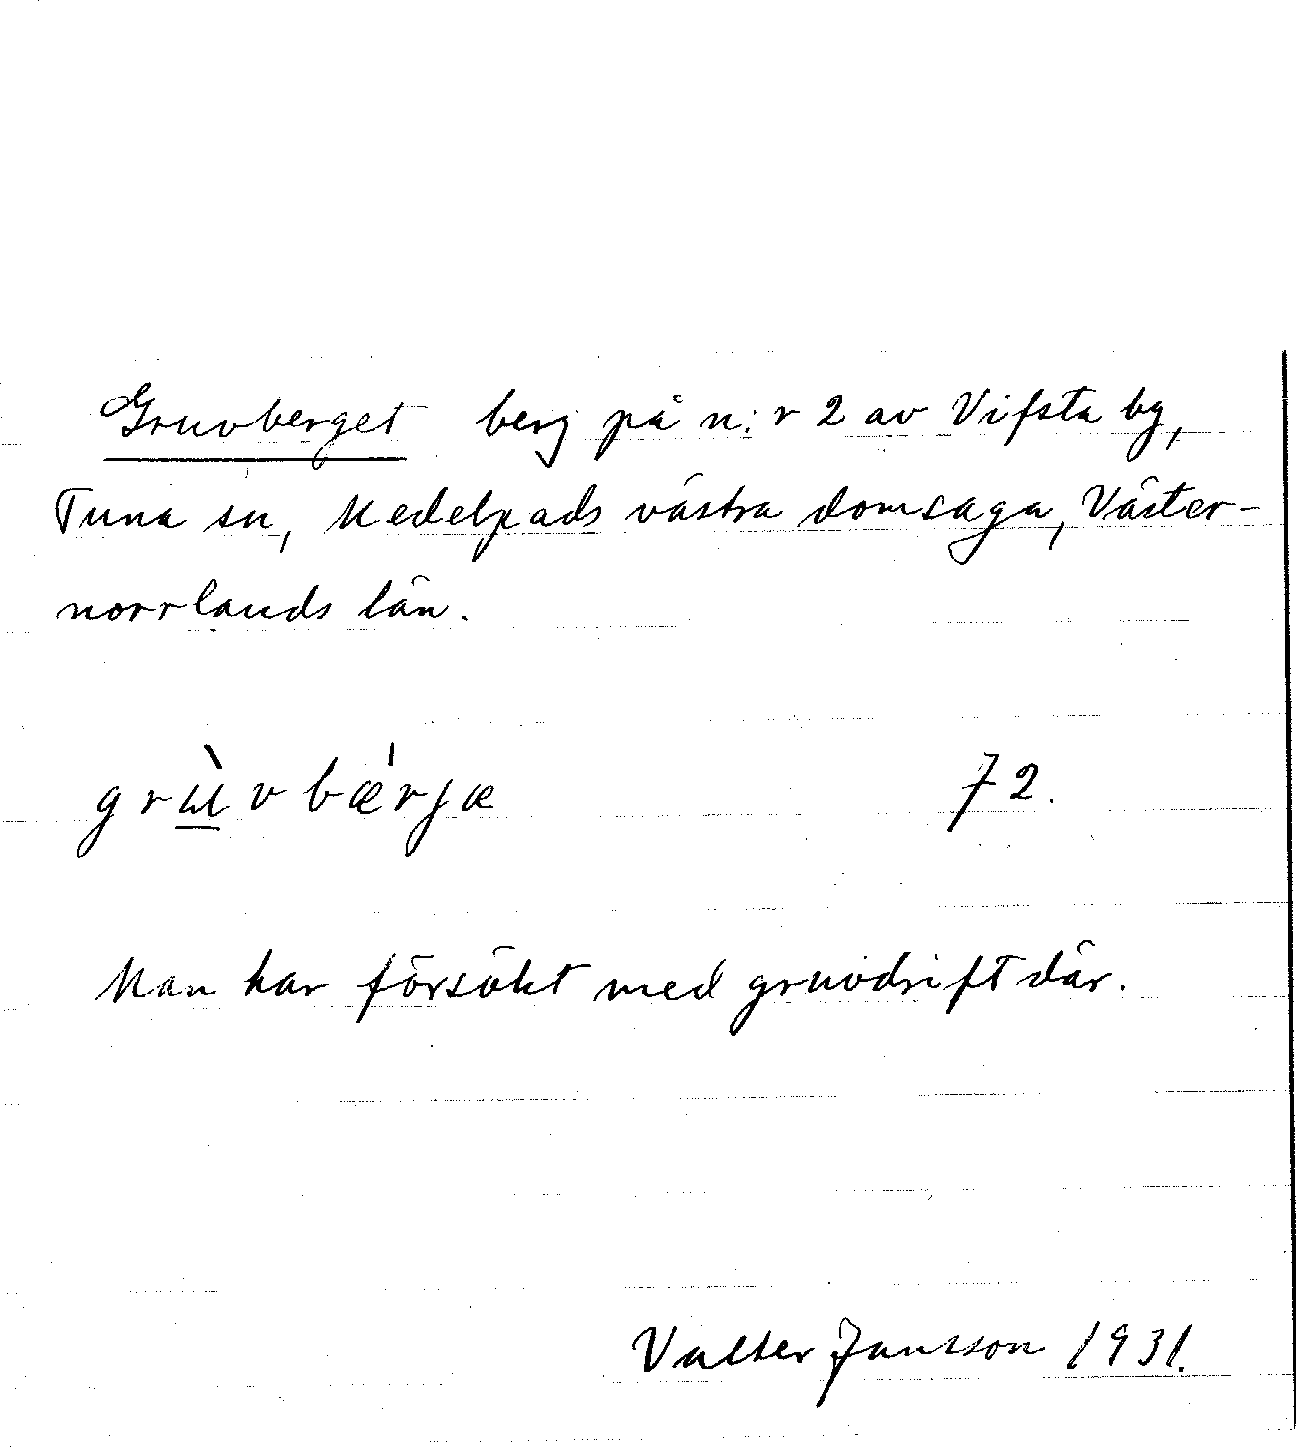 Gruvberget berg på n:r 2 av Vifsta by,
Tuna sn, Medelpads västra domsaga, Väster-
norrlands län.
grùvbǽrjæ 72.
Man har försökt med gruvdrift där.
Valter Jansson 1931.